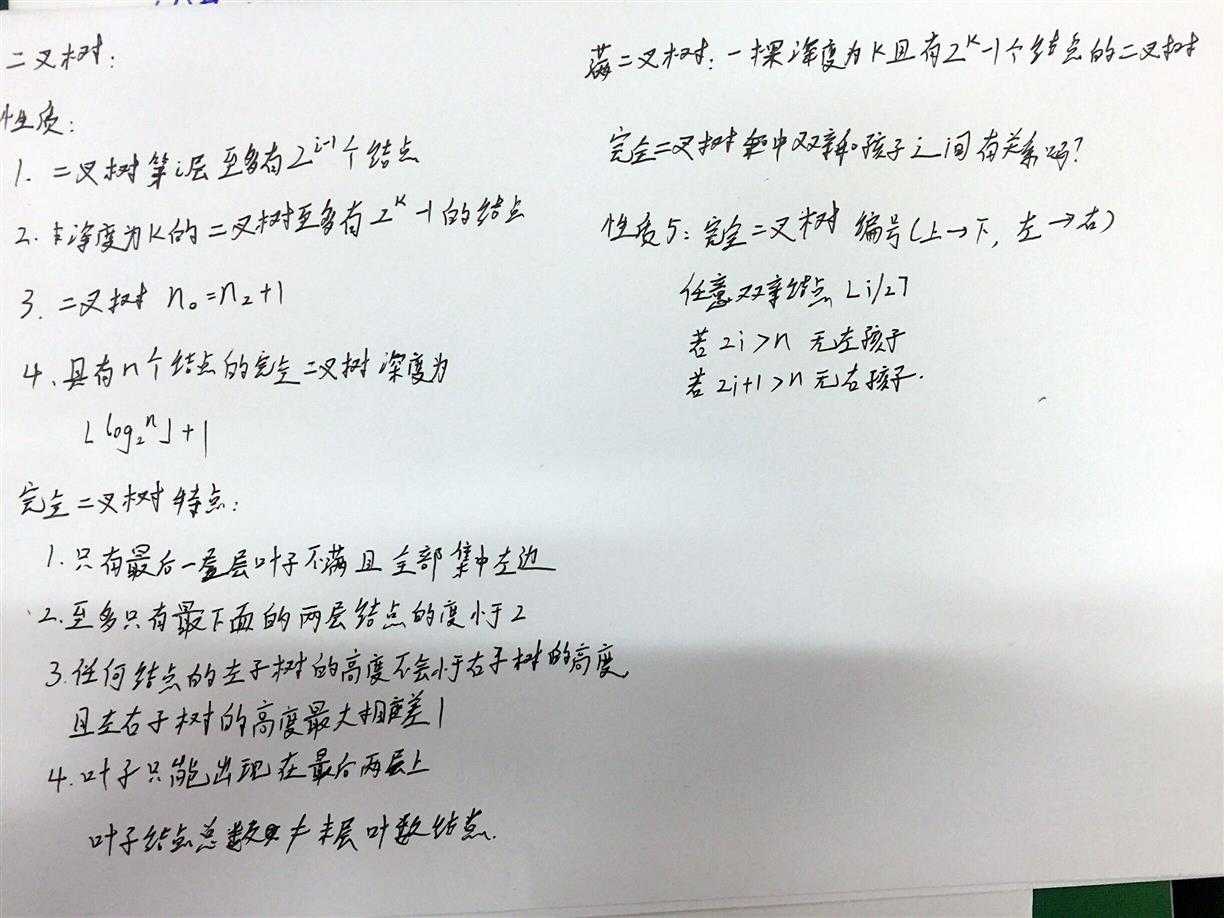 二叉树：
性质：
1. 二叉树第i层至多有2^{i-1}个结点
2. 深度为K的二叉树至多有2^K-1的结点
3. 二叉树 n₀=n₂+1
4. 具有n个结点的完全二叉树深度为
⌊log₂n⌋+1
完全二叉树特点：
1. 只有最后一层叶子不满且全部集中左边
2. 至多只有最下面的两层结点的度小于2
3. 任何结点的左子树的高度不会小于右子树的高度
且左右子树的高度最大相差1
4. 叶子只能出现在最后两层上
叶子结点总数≠末层叶数结点.
满二叉树：一棵深度为K且有2^K-1个结点的二叉树
完全二叉树中双亲和孩子之间有关系吗？
性质5：完全二叉树 编号(上→下, 左→右)
任意双亲结点 ⌊i/2⌉
若 2i>n 无左孩子
若 2i+1>n 无右孩子.